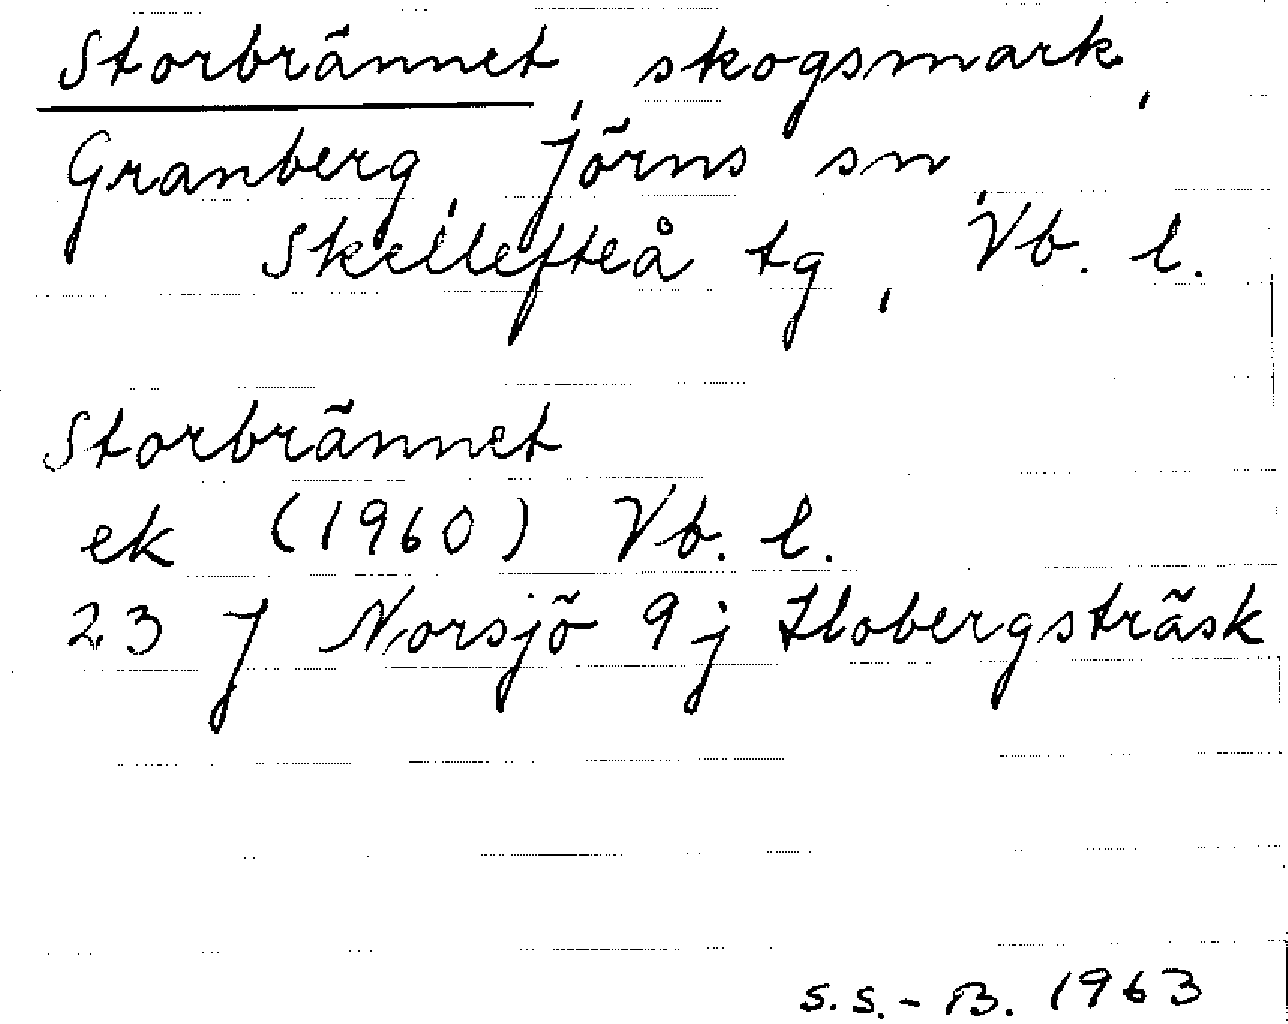 Storbrännet, skogsmark,
Granberg, Jörns sn,
Skellefteå tg, Vb. l.
Storbrännet
ek (1960) Vb. l.
23 J Norsjö 9 j Flobergsträsk
S.S.-B. 1963